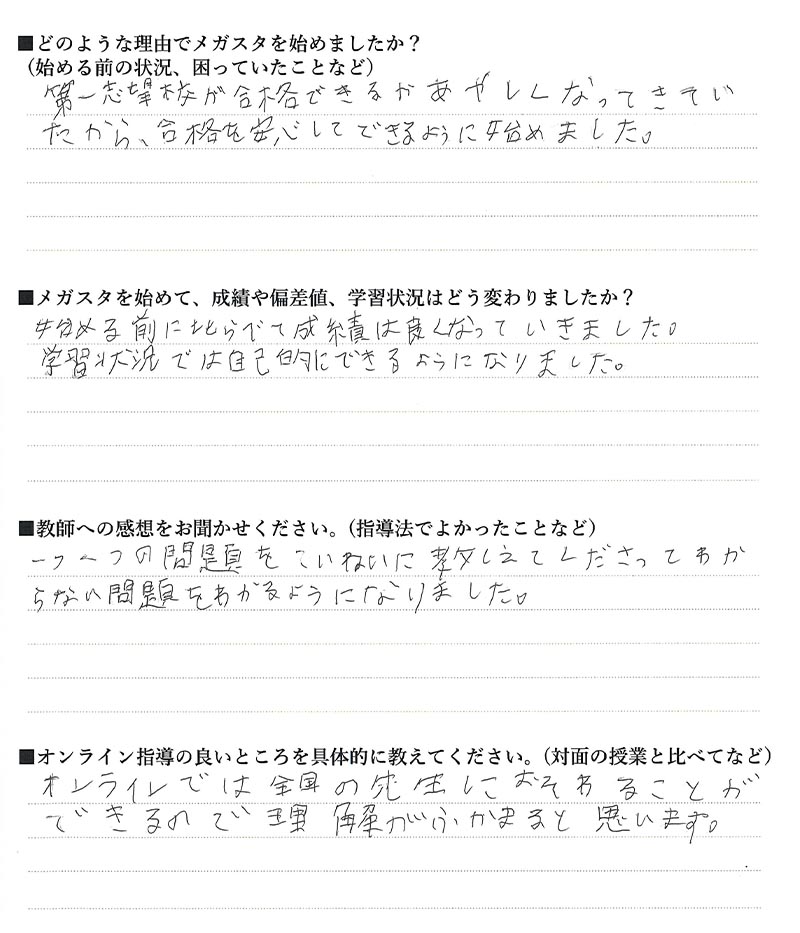 ■どのような理由でメガスタを始めましたか？
（始める前の状況、困っていたことなど）
第一志望校が合格できるかあやしくなってきてい
たから、合格を安心してできるように始めました。
■メガスタを始めて、成績や偏差値、学習状況はどう変わりましたか？
始める前に比らべて成績は良くなっていきました。
学習状況では自己的にできるようになりました。
■教師への感想をお聞かせください。（指導法でよかったことなど）
一つ一つの問題をていねいに教しえてくださってわか
らない問題をわかるようになりました。
■オンライン指導の良いところを具体的に教えてください。（対面の授業と比べてなど）
オンラインでは全国の先生におそわることが
できるので理解がふかまると思います。